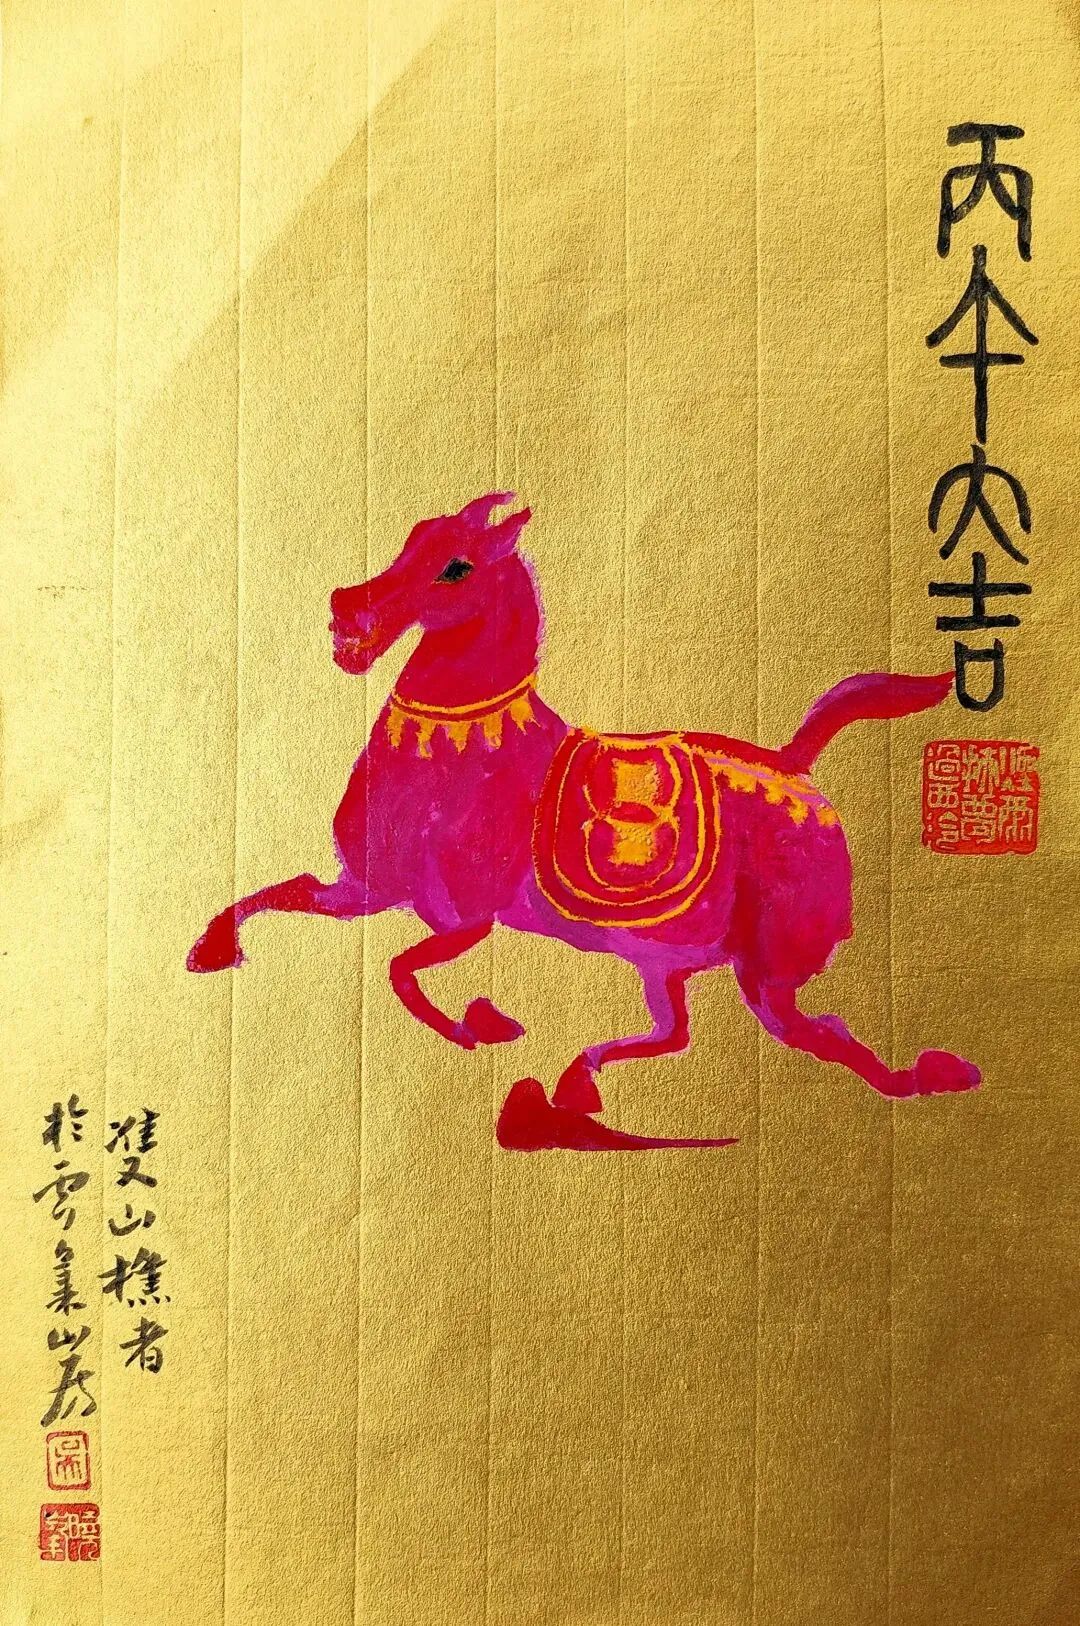 丙午大吉
過西泠
雙山樵者
於雲集山房